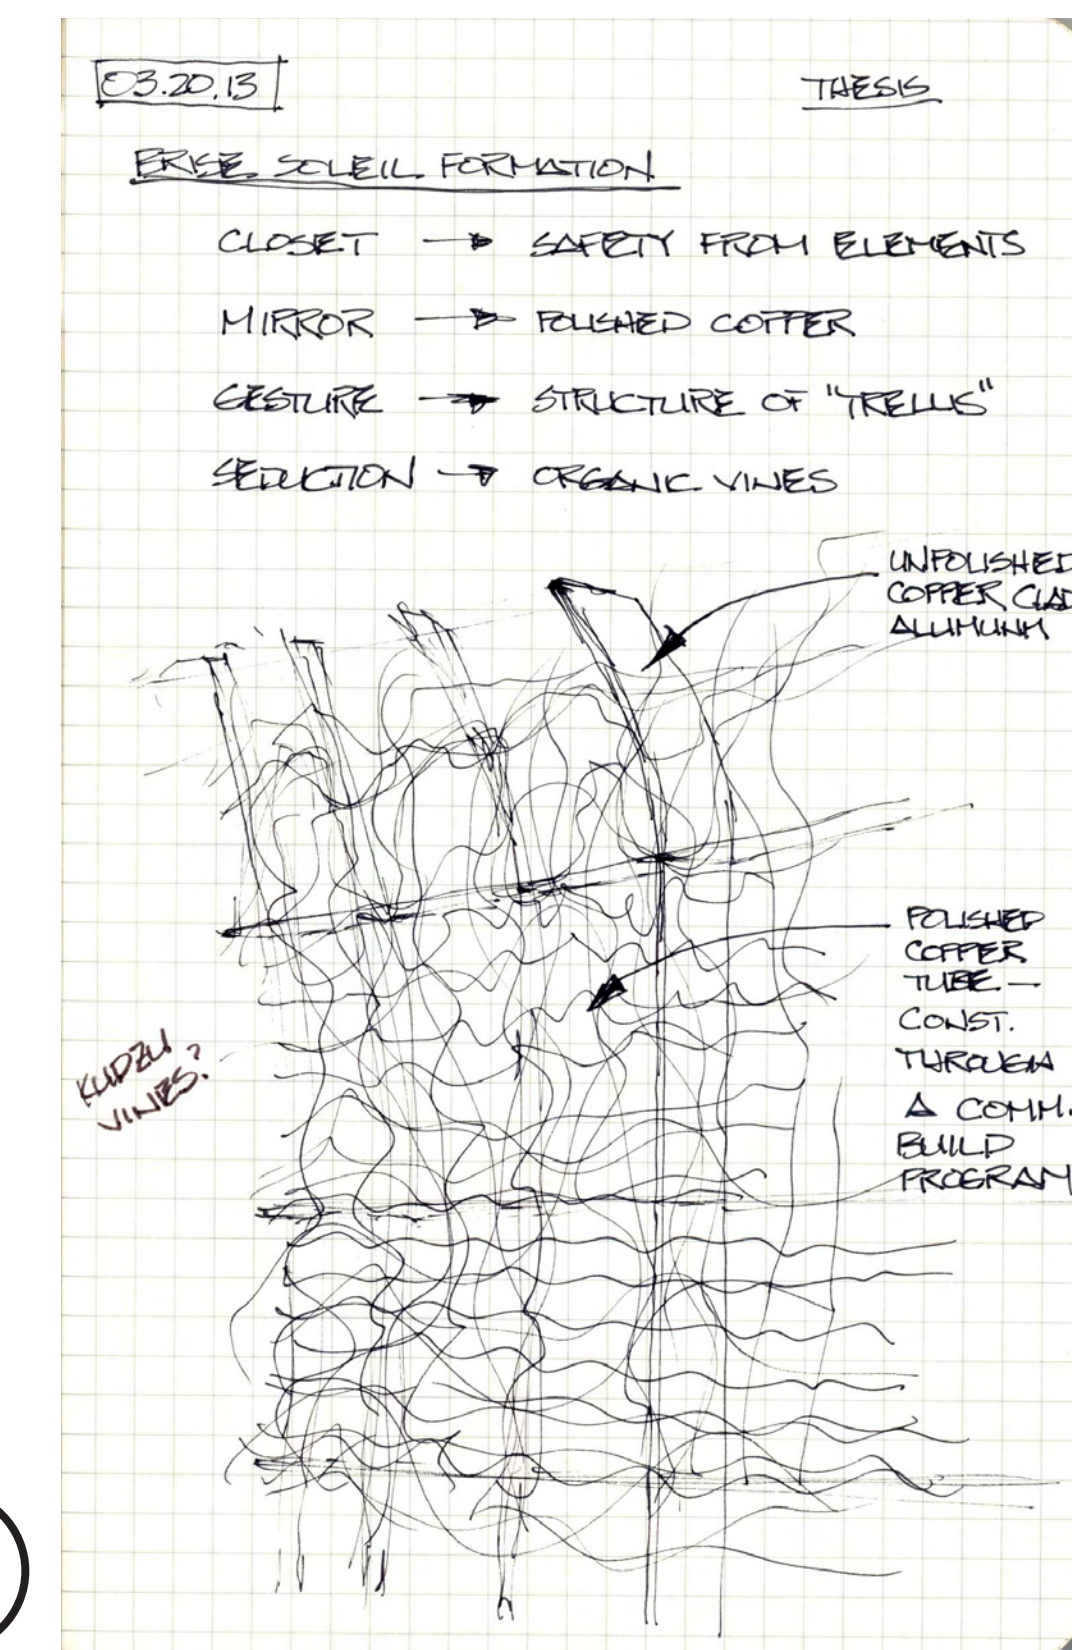 03.20.13
THESIS
BRISE SOLEIL FORMATION
CLOSET → SAFETY FROM ELEMENTS
MIRROR → POLISHED COPPER
GESTURE → STRUCTURE OF "TRELLIS"
SEDUCTION → ORGANIC VINES
UNPOLISHED
COPPER CLAD
ALUMINUM
POLISHED
COPPER
TUBE —
CONST.
THROUGH
A COMM.
BUILD
PROGRAM
KUDZU
VINES?